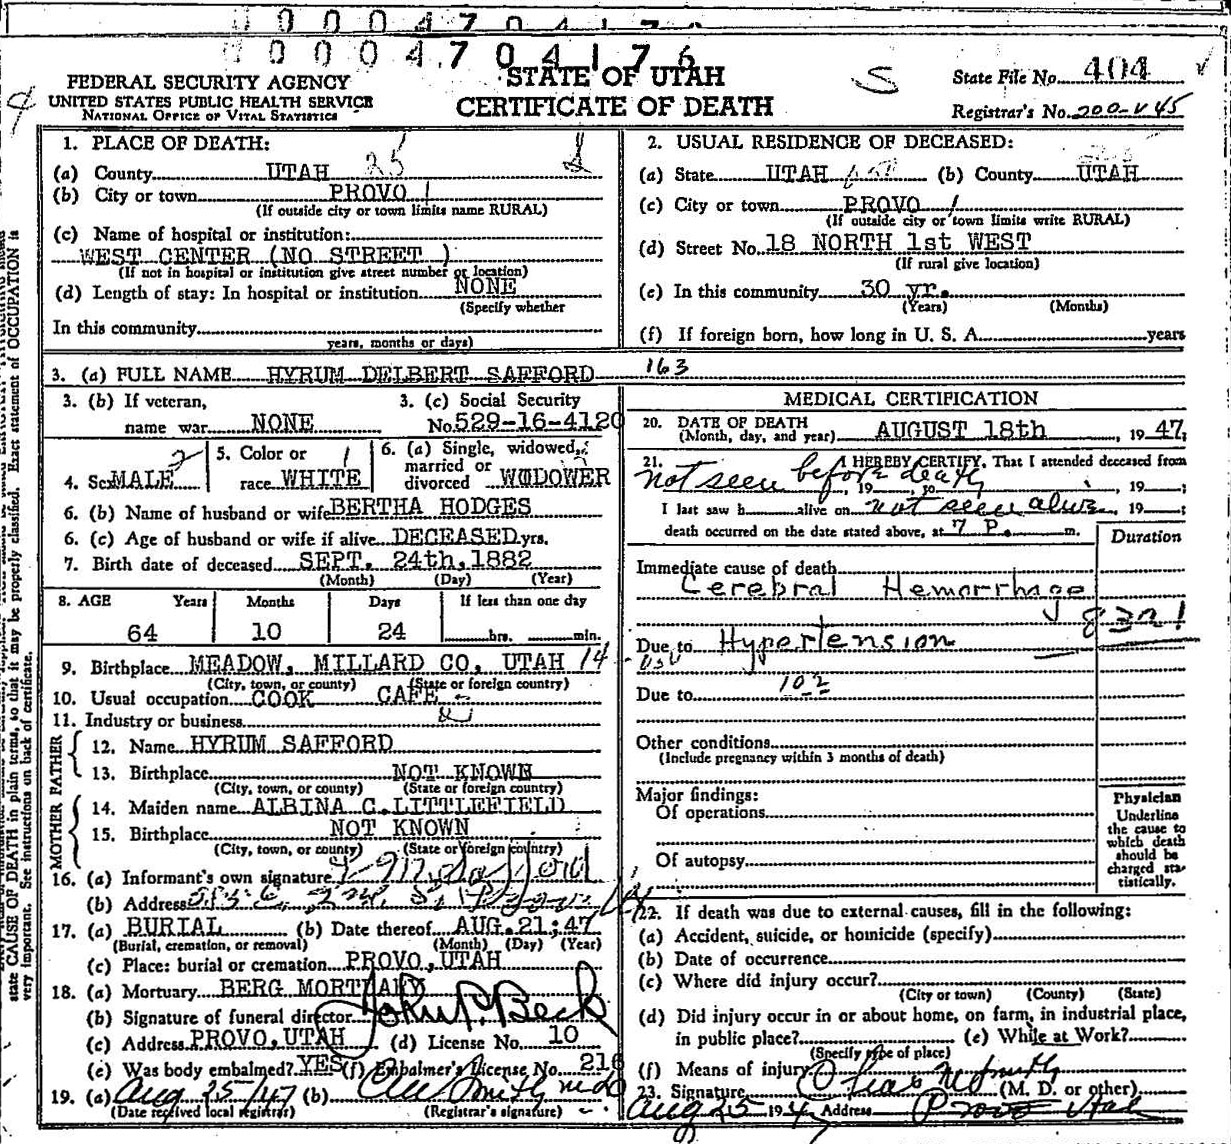 0 0 0 4 7 0 4 1 7
0 0 0 4 7 0 4 1 7 6
FEDERAL SECURITY AGENCY
UNITED STATES PUBLIC HEALTH SERVICE
NATIONAL OFFICE OF VITAL STATISTICS
STATE OF UTAH
CERTIFICATE OF DEATH
S
State File No. 404
Registrar's No. 200-V 45
state CAUSE OF DEATH in plain terms, so that it may be properly classified. Exact statement of OCCUPATION is
very important. See instructions on back of certificate.
1. PLACE OF DEATH:
(a) County UTAH 25
(b) City or town PROVO 1
(If outside city or town limits name RURAL)
(c) Name of hospital or institution:
WEST CENTER (NO STREET )
(If not in hospital or institution give street number or location)
(d) Length of stay: In hospital or institution NONE
(Specify whether
In this community
years, months or days)
2. USUAL RESIDENCE OF DECEASED:
(a) State UTAH (b) County UTAH
(c) City or town PROVO 1
(If outside city or town limits write RURAL)
(d) Street No. 18 NORTH 1st WEST
(If rural give location)
(e) In this community 30 yr.
(Years) (Months)
(f) If foreign born, how long in U. S. A. years
3. (a) FULL NAME HYRUM DELBERT SAFFORD 163
3. (b) If veteran,
name war NONE
3. (c) Social Security
No. 529-16-4120
4. Sex MALE 2
5. Color or
race WHITE 1
6. (a) Single, widowed,
married or
divorced WIDOWER
6. (b) Name of husband or wife BERTHA HODGES
6. (c) Age of husband or wife if alive DECEASED yrs.
7. Birth date of deceased SEPT. 24th, 1882
(Month) (Day) (Year)
8. AGE Years Months Days If less than one day
64 10 24 hrs. min.
9. Birthplace MEADOW, MILLARD CO, UTAH 14
(City, town, or county) (State or foreign country)
10. Usual occupation COOK CAFE
11. Industry or business
FATHER
12. Name HYRUM SAFFORD
13. Birthplace NOT KNOWN
(City, town, or county) (State or foreign country)
MOTHER
14. Maiden name ALBINA C. LITTLEFIELD
15. Birthplace NOT KNOWN
(City, town, or county) (State or foreign country)
16. (a) Informant's own signature Safford
(b) Address
17. (a) BURIAL (b) Date thereof AUG. 21, 47
(Burial, cremation, or removal) (Month) (Day) (Year)
(c) Place: burial or cremation PROVO, UTAH
18. (a) Mortuary BERG MORTUARY
(b) Signature of funeral director John P. Beck
(c) Address PROVO, UTAH (d) License No. 10
(e) Was body embalmed? YES (f) Embalmer's License No. 216
19. (a) Aug 25/47 (b)
(Date received local registrar) (Registrar's signature)
MEDICAL CERTIFICATION
20. DATE OF DEATH
(Month, day, and year) AUGUST 18th, 1947
21. I HEREBY CERTIFY, That I attended deceased from
not seen before death, 19 to , 19 ;
I last saw h alive on not seen alive, 19 ;
death occurred on the date stated above, at 7 P. m.
Duration
Immediate cause of death
Cerebral Hemorrhage
Due to Hypertension
Due to 102
Other conditions
(Include pregnancy within 3 months of death)
Major findings:
Of operations
Of autopsy
Physician
Underline
the cause to
which death
should be
charged sta-
tistically.
22. If death was due to external causes, fill in the following:
(a) Accident, suicide, or homicide (specify)
(b) Date of occurrence
(c) Where did injury occur?
(City or town) (County) (State)
(d) Did injury occur in or about home, on farm, in industrial place,
in public place? (e) While at Work?
(Specify type of place)
(f) Means of injury
23. Signature (M. D. or other)
Aug 25 1947 Address Provo Utah